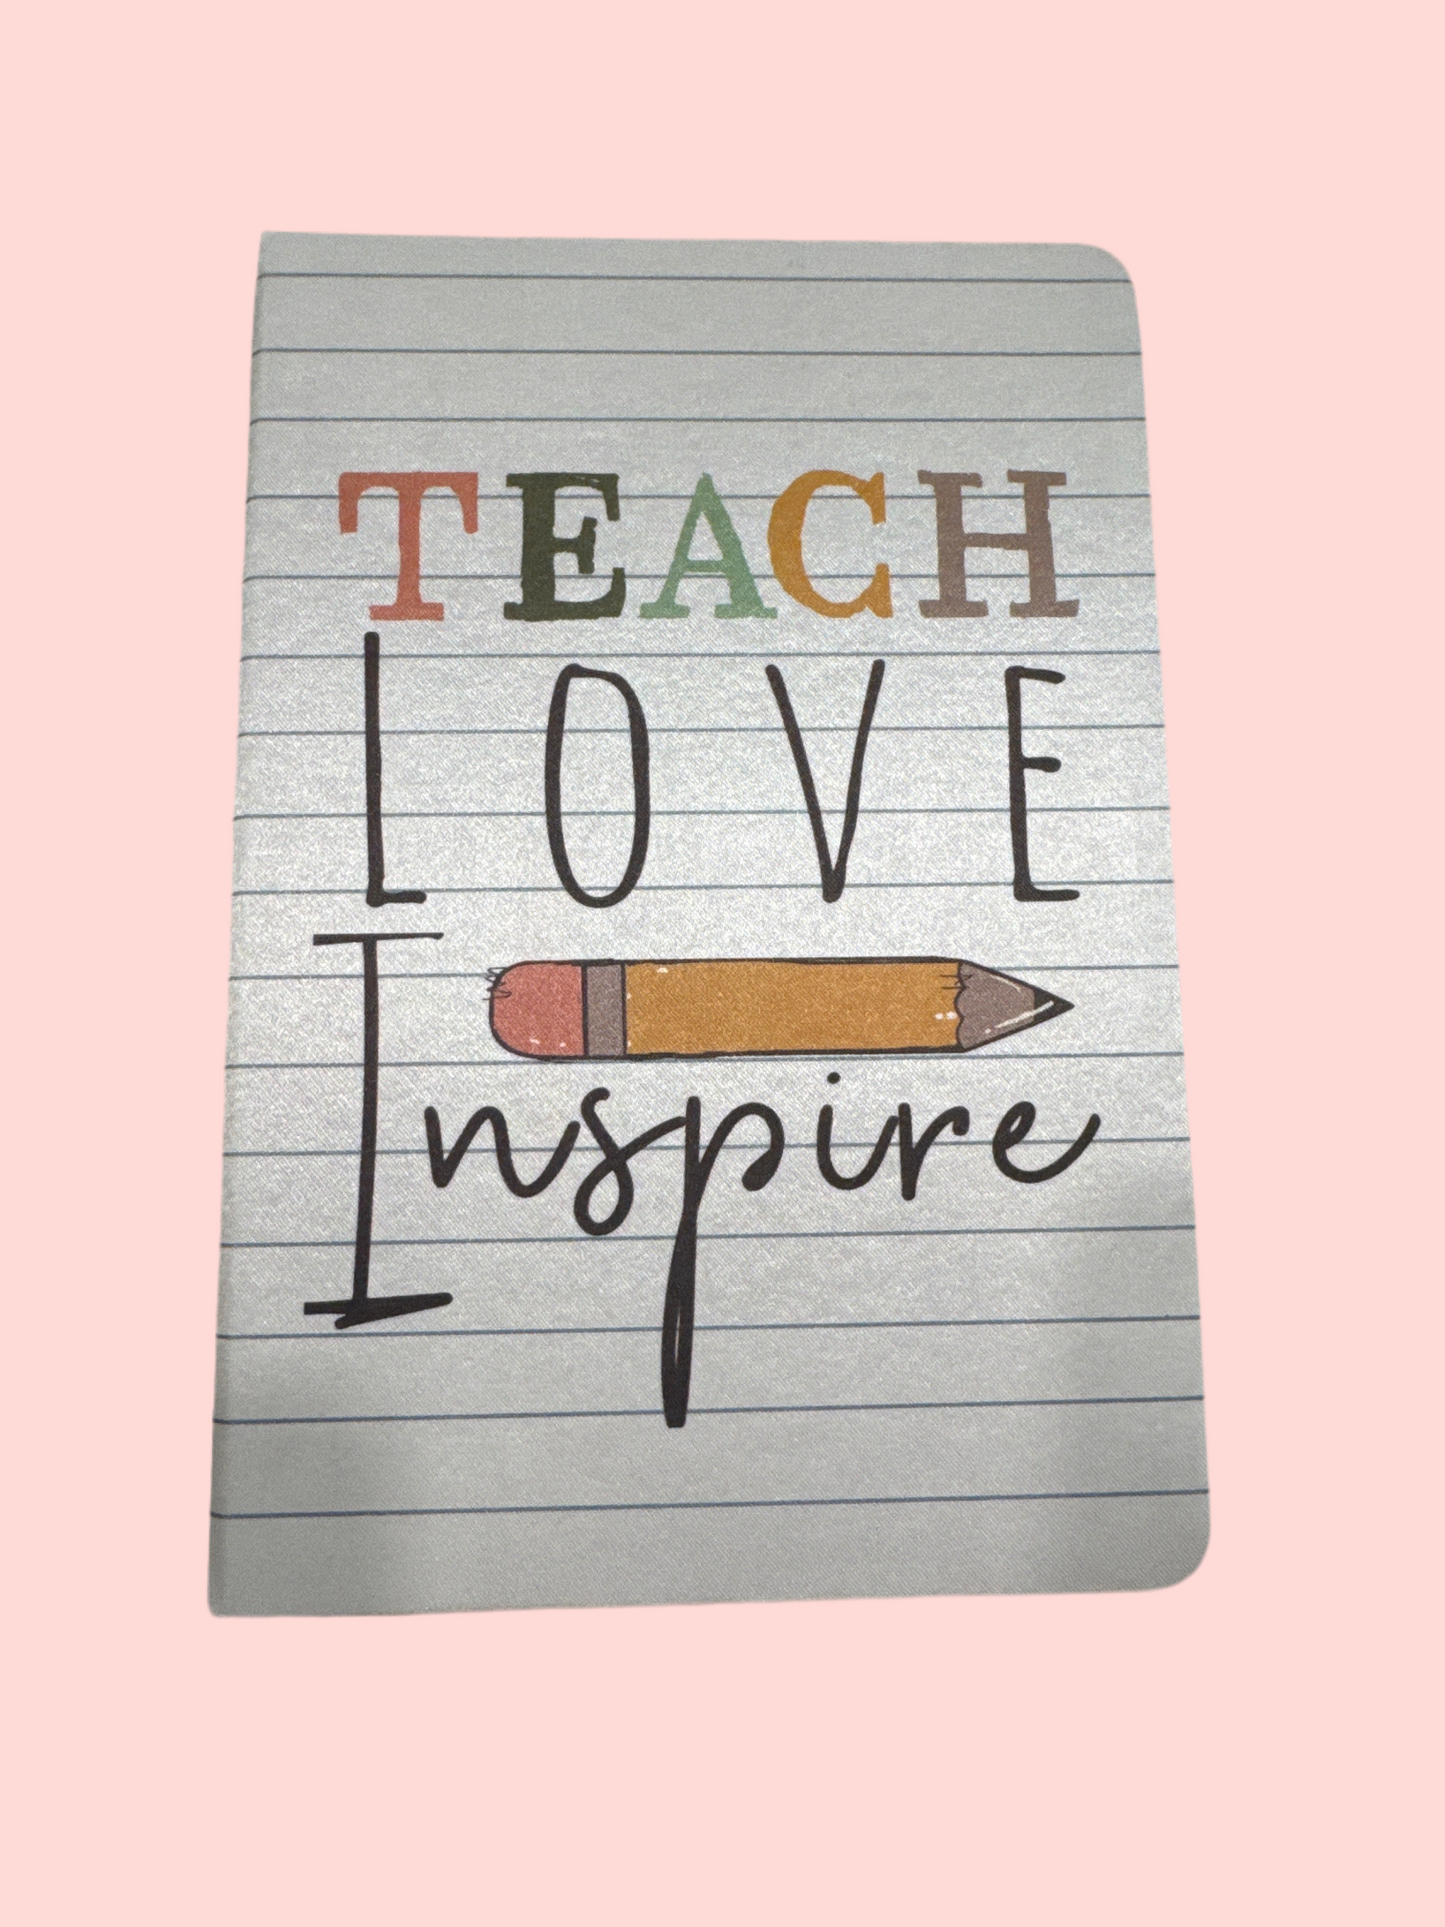 TEACH
LOVE
Inspire